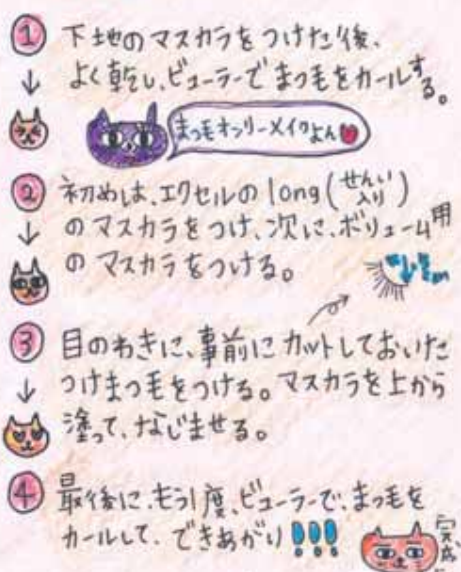 ① 下地のマスカラをつけた後、
よく乾し、ビューラーでまつ毛をカールする。
まつ毛オンリーメイクよん
② 初めは、エクセルのlong(せんい入り)
のマスカラをつけ、次に、ボリューム用
のマスカラをつける。
③ 目のわきに、事前にカットしておいた
つけまつ毛をつける。マスカラを上から
塗って、なじませる。
④ 最後に、もう1度、ビューラーで、まつ毛を
カールして、できあがり!!!
完成